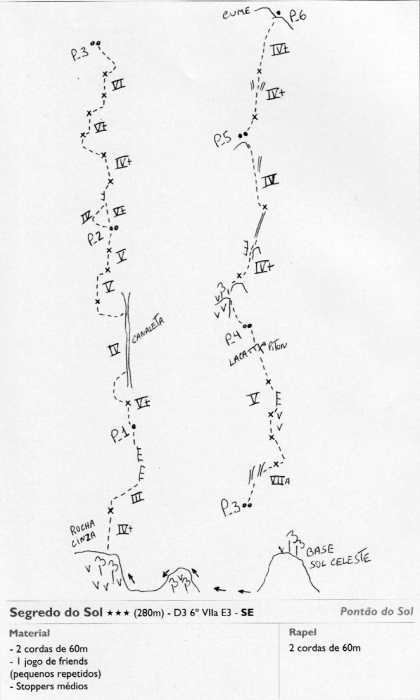 CUME
P_6
IV+
IV+
P_5
IV
IV+
P_4
LACA
PITON
V
VIIA
P_3
BASE
SOL CELESTE
P_3
VI
V+
IV+
IV
V+
P_2
V
V
CANALETA
IV
V+
P_1
III
IV+
ROCHA
CINZA
Segredo do Sol ★★★ (280m) - D3 6º VIIa E3 - SE
Pontão do Sol
Material
- 2 cordas de 60m
- 1 jogo de friends
(pequenos repetidos)
- Stoppers médios
Rapel
2 cordas de 60m